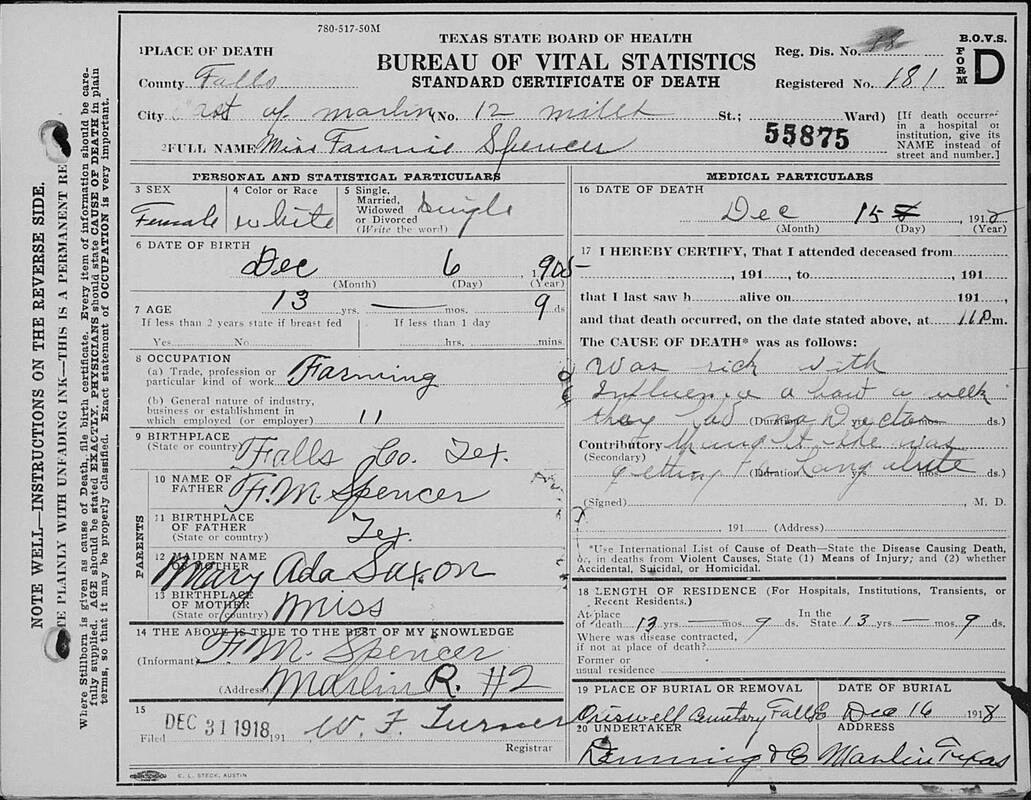 780-517-50M
TEXAS STATE BOARD OF HEALTH
BUREAU OF VITAL STATISTICS
STANDARD CERTIFICATE OF DEATH
B.O.V.S.
FORM D
Reg. Dis. No. 88
Registered No. 181
55875
1 PLACE OF DEATH
County Falls
City East of Marlin No. 12 miles St.; Ward)
[If death occurred in a hospital or institution, give its NAME instead of street and number.]
2 FULL NAME Miss Fannie Spencer
PERSONAL AND STATISTICAL PARTICULARS
3 SEX
Female
4 Color or Race
white
5 Single, Married, Widowed or Divorced (Write the word)
Single
6 DATE OF BIRTH
Dec 6, 1905
(Month) (Day) (Year)
7 AGE
13 yrs. — mos. 9 ds
If less than 2 years state if breast fed
Yes No
If less than 1 day
hrs, mins
8 OCCUPATION
(a) Trade, profession or particular kind of work Farming
(b) General nature of industry, business or establishment in which employed (or employer) 11
9 BIRTHPLACE
(State or country) Falls Co. Tex.
PARENTS
10 NAME OF FATHER F.M. Spencer
11 BIRTHPLACE OF FATHER
(State or country) Tex.
12 MAIDEN NAME OF MOTHER Mary Ada Saxon
13 BIRTHPLACE OF MOTHER
(State or country) Miss
14 THE ABOVE IS TRUE TO THE BEST OF MY KNOWLEDGE
(Informant) F.M. Spencer
(Address) Marlin R. #2
15
Filed DEC 31 1918 191 W. F. Turner
Registrar
MEDICAL PARTICULARS
16 DATE OF DEATH
Dec 15 191
(Month) (Day) (Year)
17 I HEREBY CERTIFY, That I attended deceased from
, 191 , to , 191 ,
that I last saw h alive on 191 ,
and that death occurred, on the date stated above, at 11 P m.
The CAUSE OF DEATH* was as follows:
Was sick with
Influence a bout a week
they had no Doctor
(Duration) yrs. mos. ds.)
Contributory thought she was
(Secondary)
getting along alrite
(Duration) yrs. mos. ds.)
(Signed) M. D.
, 191 (Address)
*Use International List of Cause of Death—State the Disease Causing Death, or, in deaths from Violent Causes, State (1) Means of Injury; and (2) whether Accidental, Suicidal, or Homicidal.
18 LENGTH OF RESIDENCE (For Hospitals, Institutions, Transients, or Recent Residents.)
At place of death 13 yrs. — mos. 9 ds. In the State 13 yrs. — mos. 9 ds.
Where was disease contracted, if not at place of death?
Former or usual residence
19 PLACE OF BURIAL OR REMOVAL
Criswell Cemetary Falls
DATE OF BURIAL
Dec 16 1918
20 UNDERTAKER
ADDRESS
Marlin Texas
C. L. STECK, AUSTIN
NOTE WELL—INSTRUCTIONS ON THE REVERSE SIDE.
TE PLAINLY WITH UNFADING INK—THIS IS A PERMANENT RE
Where Stillborn is given as cause of Death, file birth certificate. Every item of information should be care-
fully supplied. AGE should be stated EXACTLY. PHYSICIANS should state CAUSE OF DEATH in plain
terms, so that it may be properly classified. Exact statement of OCCUPATION is very important.